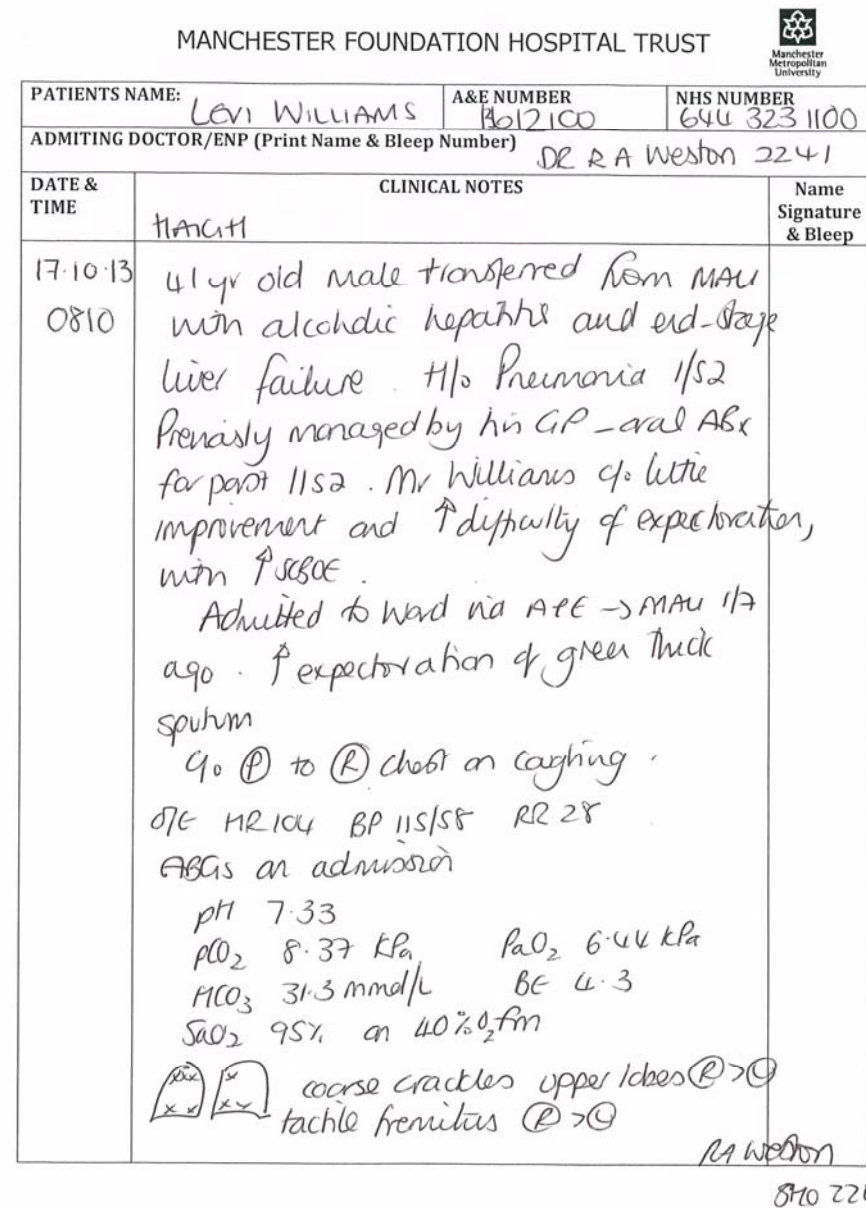 MANCHESTER FOUNDATION HOSPITAL TRUST
Manchester
Metropolitan
University
PATIENTS NAME: LEVI WILLIAMS A&E NUMBER 612100 NHS NUMBER 644 323 1100
ADMITING DOCTOR/ENP (Print Name & Bleep Number) DR R A Weston 2241
DATE & TIME CLINICAL NOTES Name Signature & Bleep
17.10.13 41 yr old male transferred from MAU
0810 with alcoholic hepatitis and end-stage
liver failure. H/o Pneumonia 1/52
Previously managed by his GP - oral ABx
for past 1/52. Mr Williams c/o little
improvement and ↑ difficulty of expectoration,
with ↑ SOBOE.
Admitted to ward via A+E → MAU 1/7
ago. ↑ expectoration of green thick
sputum
c/o Ⓟ to Ⓡ chest on coughing.
O/E HR 104 BP 115/58 RR 28
ABGs on admission
pH 7.33
pCO2 8.37 kPa PaO2 6.44 kPa
HCO3 31.3 mmol/L BE 4.3
SaO2 95% on 40% O2 fm
coarse crackles upper lobes Ⓡ > Ⓛ
tactile fremitus Ⓡ > Ⓛ
RA Weston